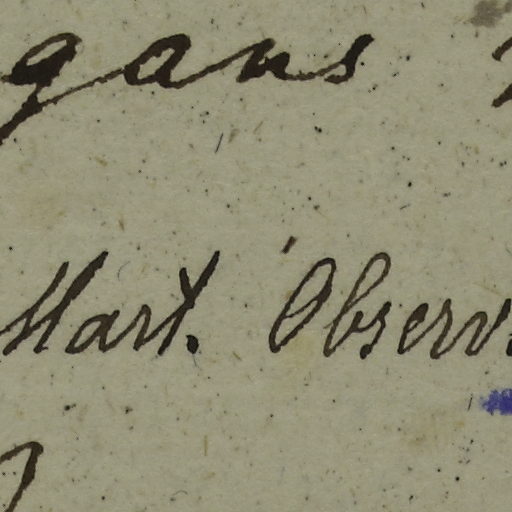 gans
Hart. Observ.